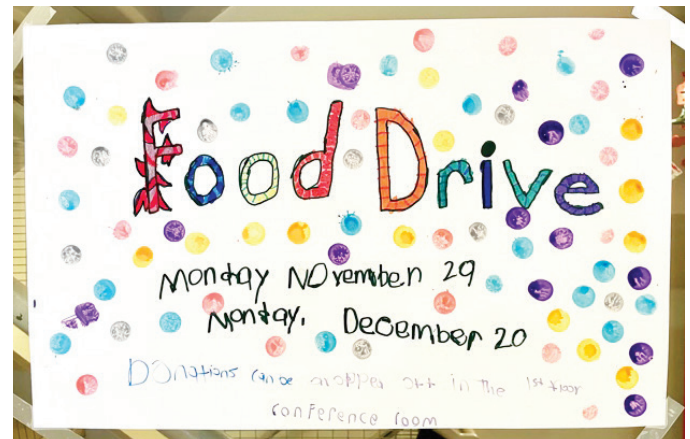 Food Drive
Monday November 29
Monday, December 20
Donations can be dropped off in the 1st floor
conference room